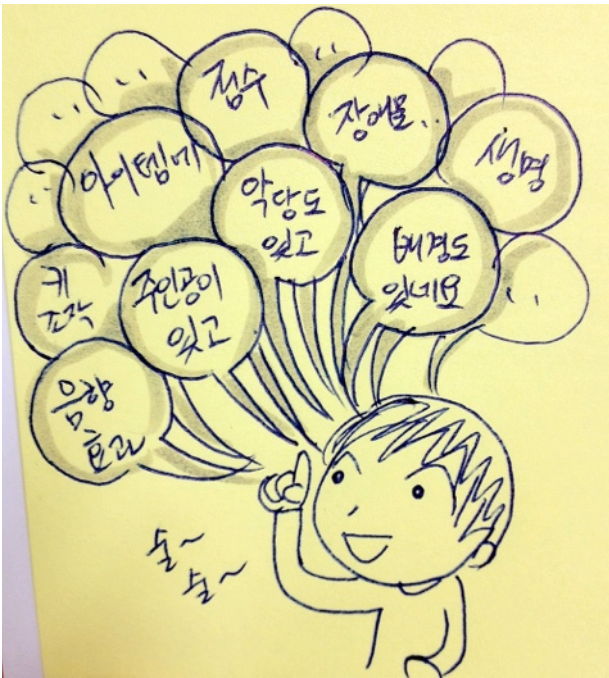 점수
장애물..
생명
아이템에
악당도
있고
배경도
있네요
키
조작
주인공이
있고
음향
효과
술~
술~